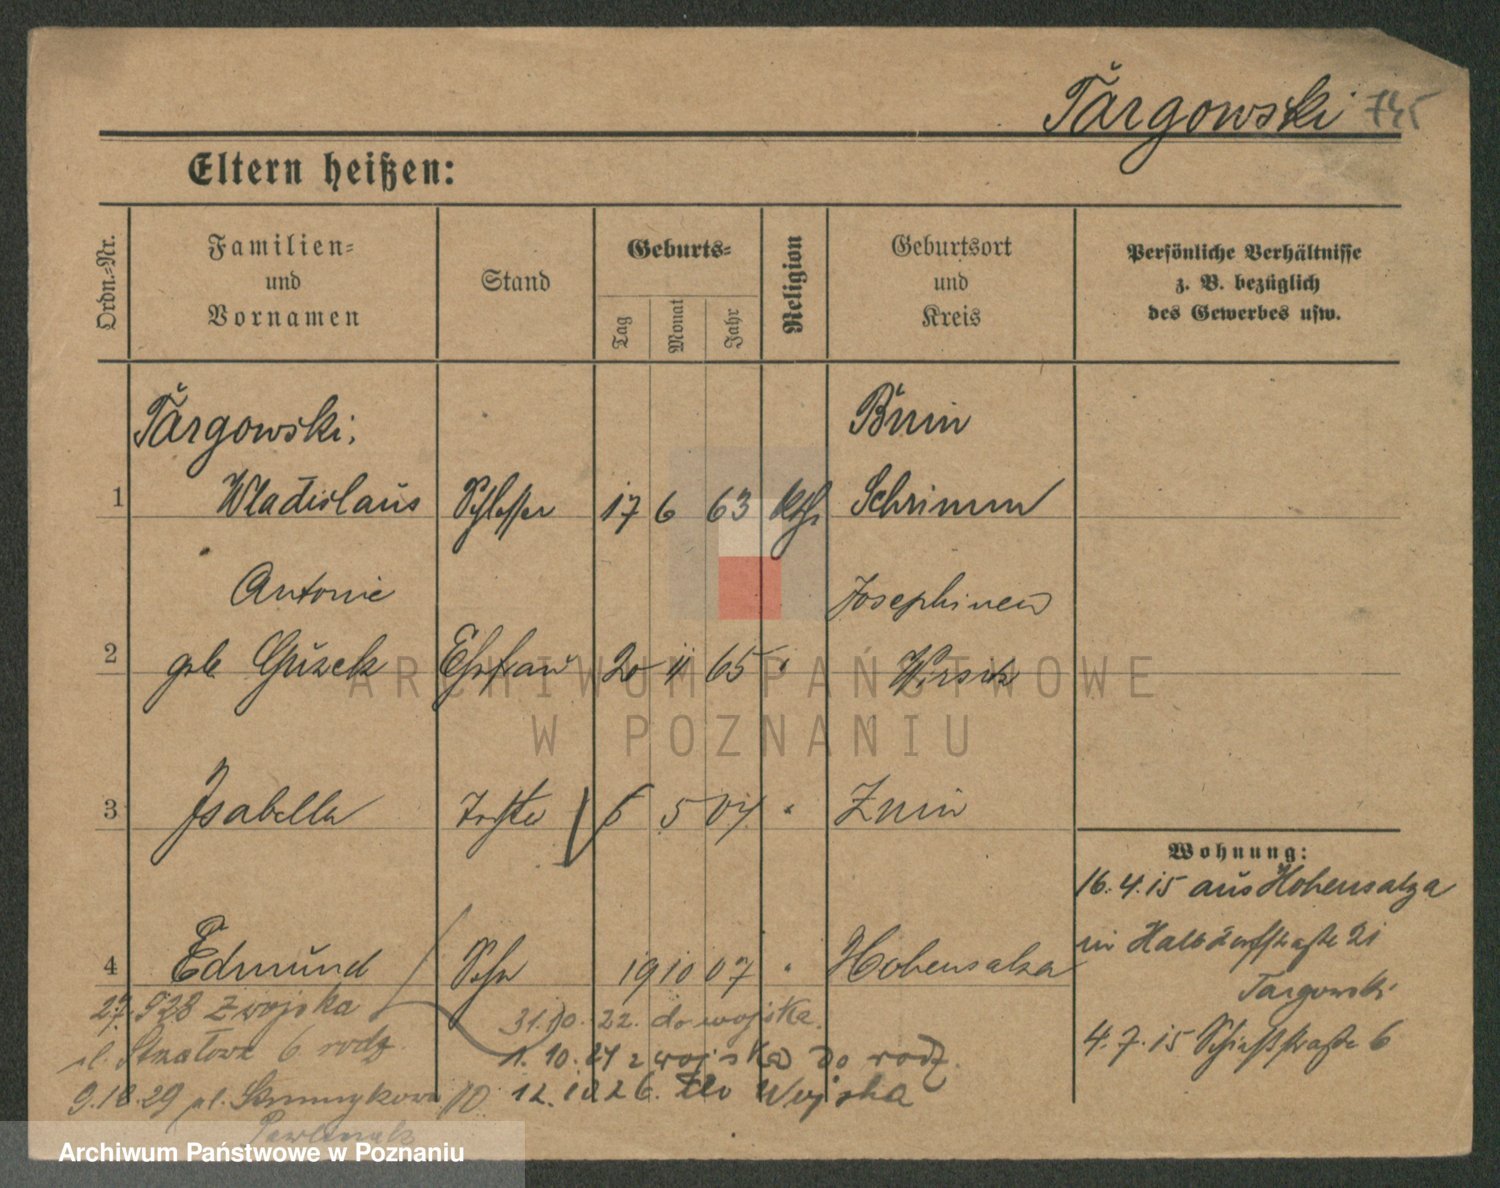 Targowski 745
Eltern heißen:
Ordn.=Nr.
Familien=
und
Vornamen
Stand
Geburts=
Tag
Monat
Jahr
Religion
Geburtsort
und
Kreis
Persönliche Verhältnisse
z. B. bezüglich
des Gewerbes usw.
Targowski, Bnin
1 Wladislaus Schlosser 17 6 63 kth Schrimm
Antonie Josephinen
2 geb Guzek Ehefrau 20 11 65 " Wirsitz
3 Isabella Tochter 6 5 04 " Znin
Wohnung:
16.4.15 aus Hohensalza
in Halbdorfstraße 21
Targowski
4 Edmund Sohn 19 10 07 " Hohensalza
4.7.15 Schießstraße 6
27. 9 28 z wojska
31.10.22. do wojska.
ul. Strzałowa 6 rodz.
1.10.24 z wojska do rodz.
9.10.29 ul. 10.
12.10 26. do Wojska
ARCHIWUM PAŃSTWOWE
W POZNANIU
Archiwum Państwowe w Poznaniu